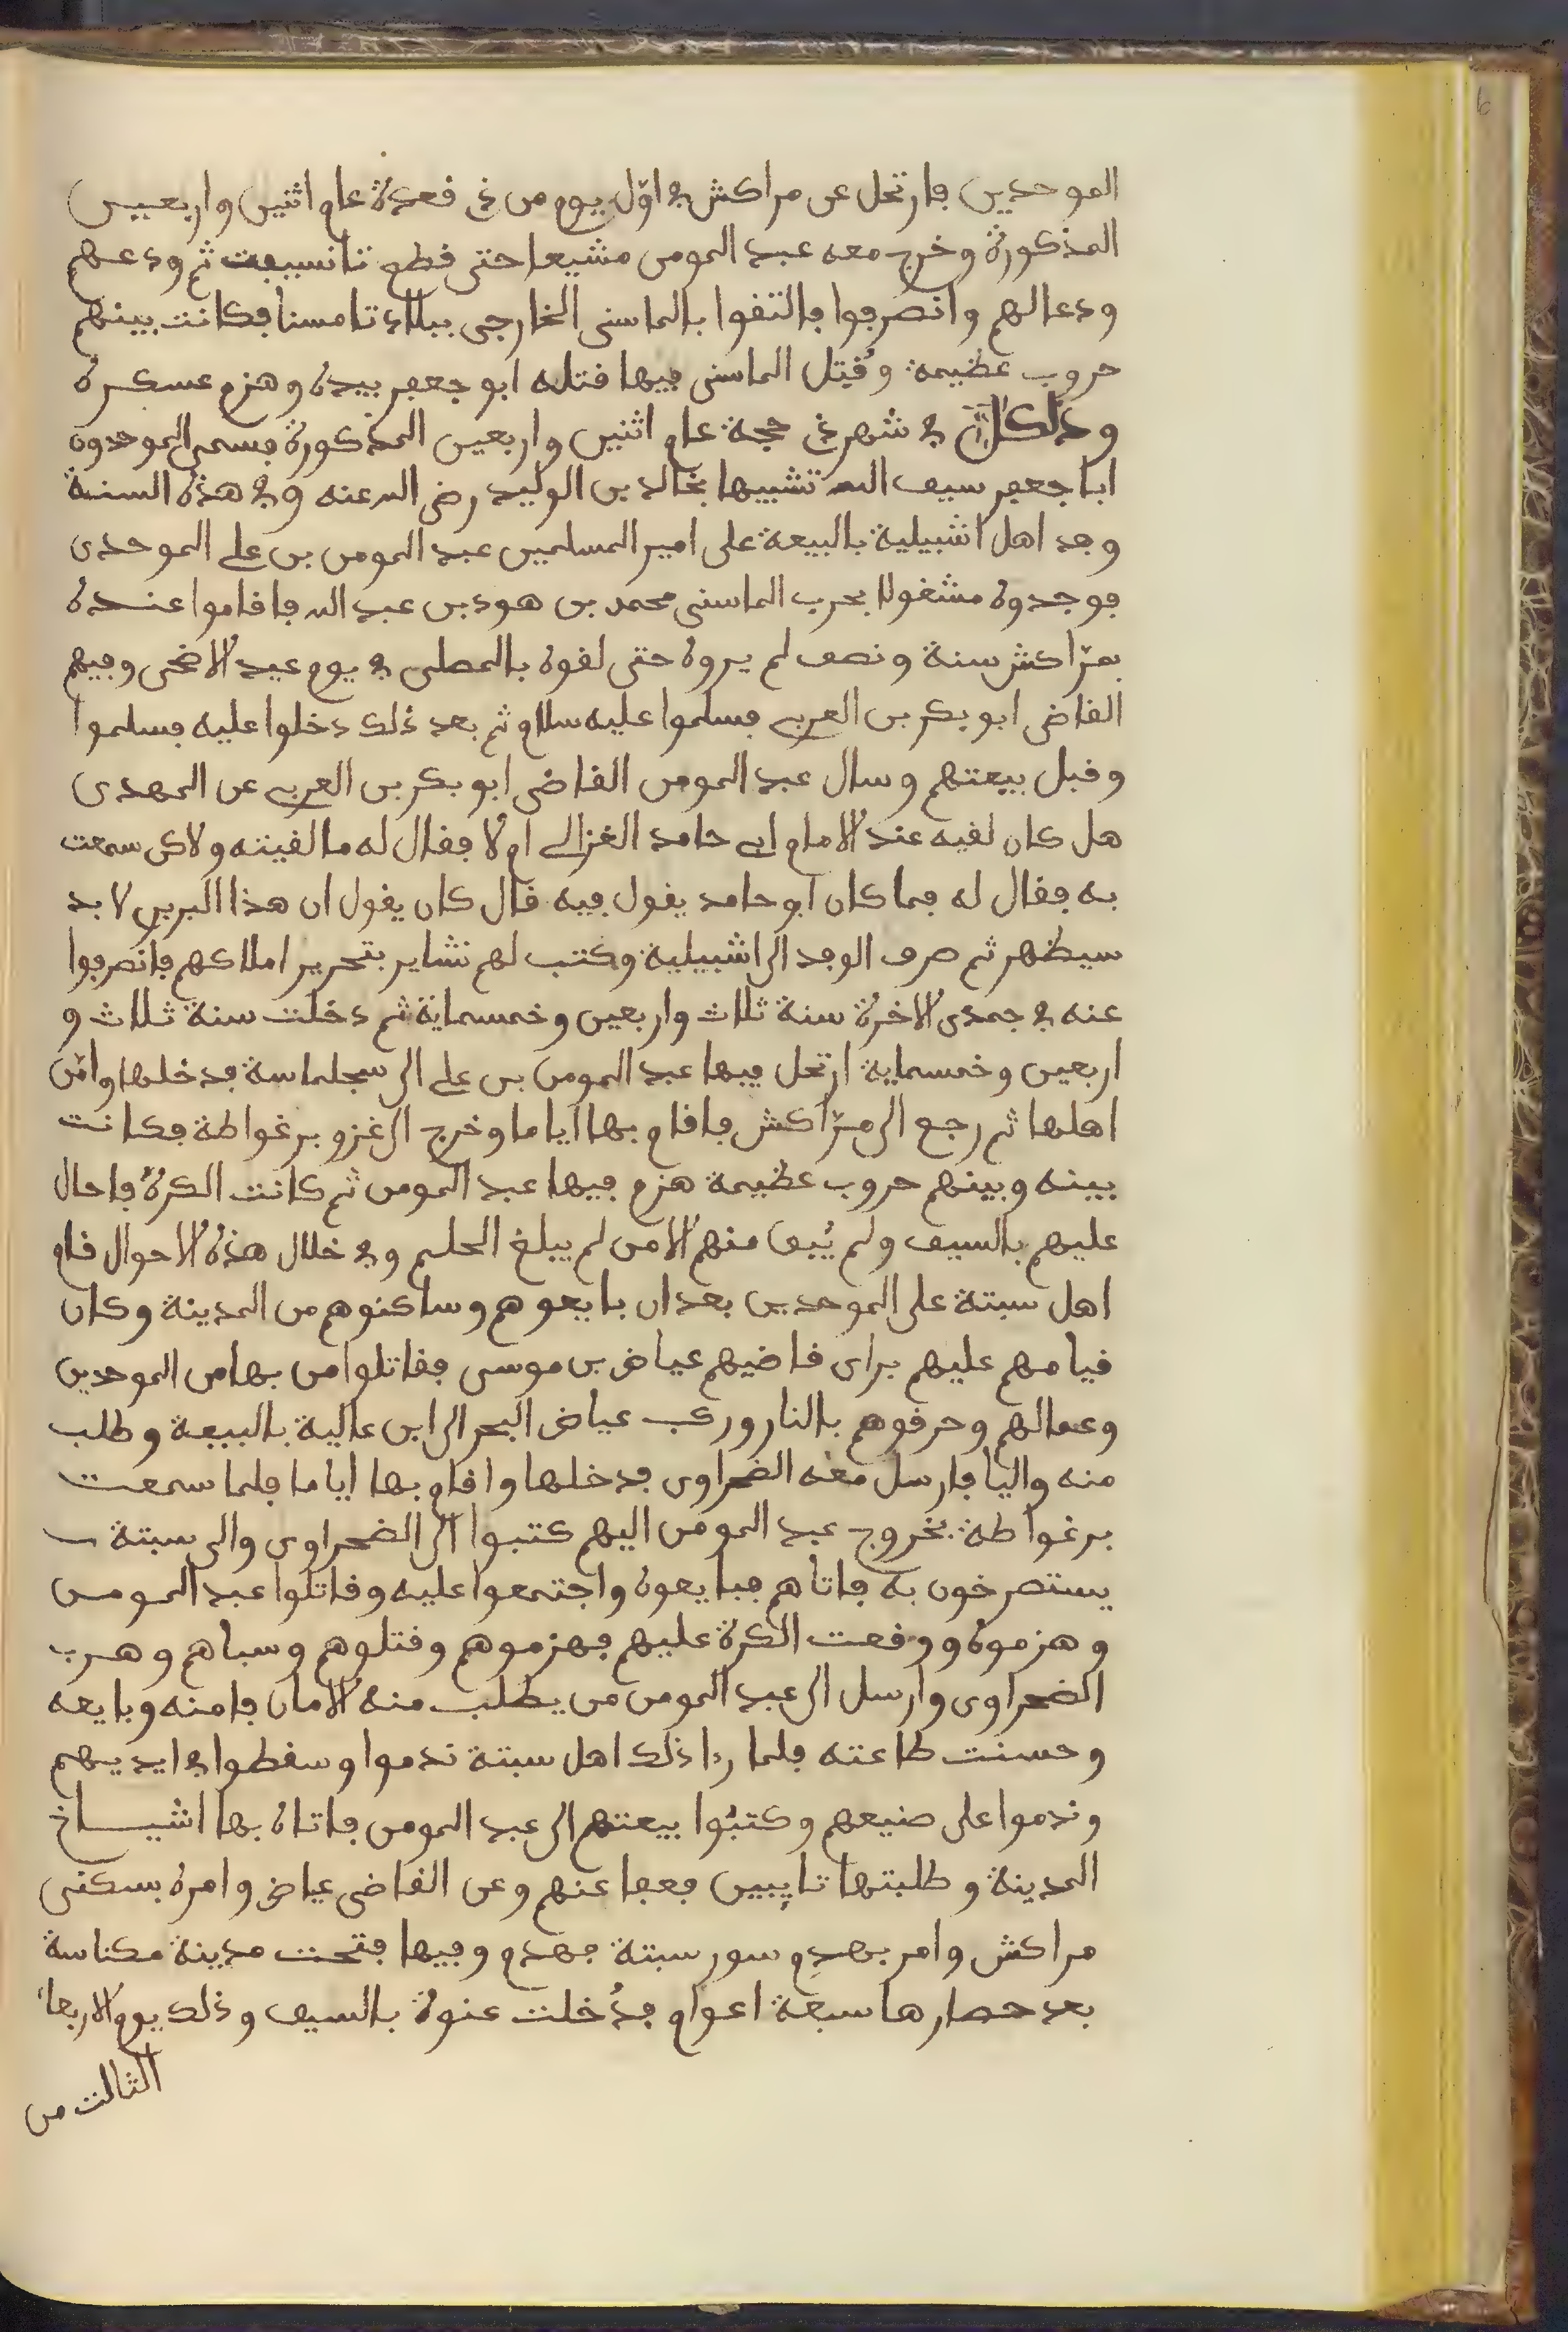 الموحدين فارتحل عن مراكش في اوّل يوم من ذي قعدة عام اثنين واربعين
المذكورة وخرج معه عبد المومن مشيعا حتى قطع تانسيفت ثم ودعهم
ودعا لهم وانصرفوا فالتقوا بالماسي الخارجي ببلاد تامسنا فكانت بينهم
حروب عظيمة وقُتِل الماسي فيها قتله ابو جعفر بيده وهزم عسكره
وذلك في شهر ذي حجة عام اثنين واربعين المذكورة فسمى الموحدون
ابا جعفر سيف الله تشبيها بخالد بن الوليد رضي الله عنه وفي هذه السنة
وفد اهل اشبيلية بالبيعة على امير المسلمين عبد المومن بن علي الموحدي
فوجدوه مشغولا بحرب الماسي محمد بن هود بن عبد الله فاقاموا عنده
بمرّاكش سنة ونصف لم يروه حتى لقوه بالمصلى في يوم عيد الاضحى وفيهم
القاضي ابو بكر بن العربي فسلموا عليه سلام ثم بعد ذلك دخلوا عليه فسلموا
وقبل بيعتهم وسال عبد المومن القاضي ابو بكر بن العربي عن المهدي
هل كان لقيه عند الامام ابي حامد الغزالي ام لا فقال له ما لقيته ولاكن سمعت
به فقال له فما كان ابو حامد يقول فيه قال كان يقول ان هذا البربري لا بد
سيظهر ثم صرف الوفد الى اشبيلية وكتب لهم نشاير بتحرير املاكهم فانصرفوا
عنه في جمدى الاخرة سنة ثلاث واربعين وخمسماية ثم دخلت سنة ثلاث و
اربعين وخمسماية ارتحل فيها عبد المومن بن علي الى سجلماسة فدخلها وامّن
اهلها ثم رجع الى مرّاكش فاقام بها اياما وخرج الى غزو برغواطة فكانت
بينه وبينهم حروب عظيمة هزم فيها عبد المومن ثم كانت الكرة فاحال
عليهم بالسيف ولم يُبق منهم الا من لم يبلغ الحلم وفي خلال هذه الاحوال قام
اهل سبتة على الموحدين بعد ان بايعوهم وساكنوهم من المدينة وكان
قيامهم عليهم براي قاضيهم عياض بن موسى فقاتلوا من بها من الموحدين
وعمالهم وحرقوهم بالنار وركب عياض البحر الى ابن عالية بالبيعة وطلب
منه واليا فارسل معه الضحراوي فدخلها واقام بها اياما فلما سمعت
برغواطة بخروج عبد المومن اليهم كتبوا الى الضحراوي والى سبتة
يستصرخون به فاتاهم فبايعوه واجتمعوا عليه وقاتلوا عبد المومن
وهزموه ووقعت الكرة عليهم فهزموهم وقتلوهم وسباهم وهرب
الضحراوي وارسل الى عبد المومن من يطلب منه الامان فامنه وبايعه
وحسنت طاعته فلما را ذلك اهل سبتة ندموا وسقطوا في ايديهم
وندموا على صنيعهم وكتبُوا بيعتهم الى عبد المومن فاتاه بها اشياخ
المدينة وطلبتها تايبين فعفا عنهم وعن القاضي عياض وامره بسكنى
مراكش وامر بهدم سور سبتة فهدم وفيها فتحت مدينة مكناسة
بعد حصارها سبعة اعوام فدُخلت عنوة بالسيف وذلك يوم الاربعاء
الثالث من